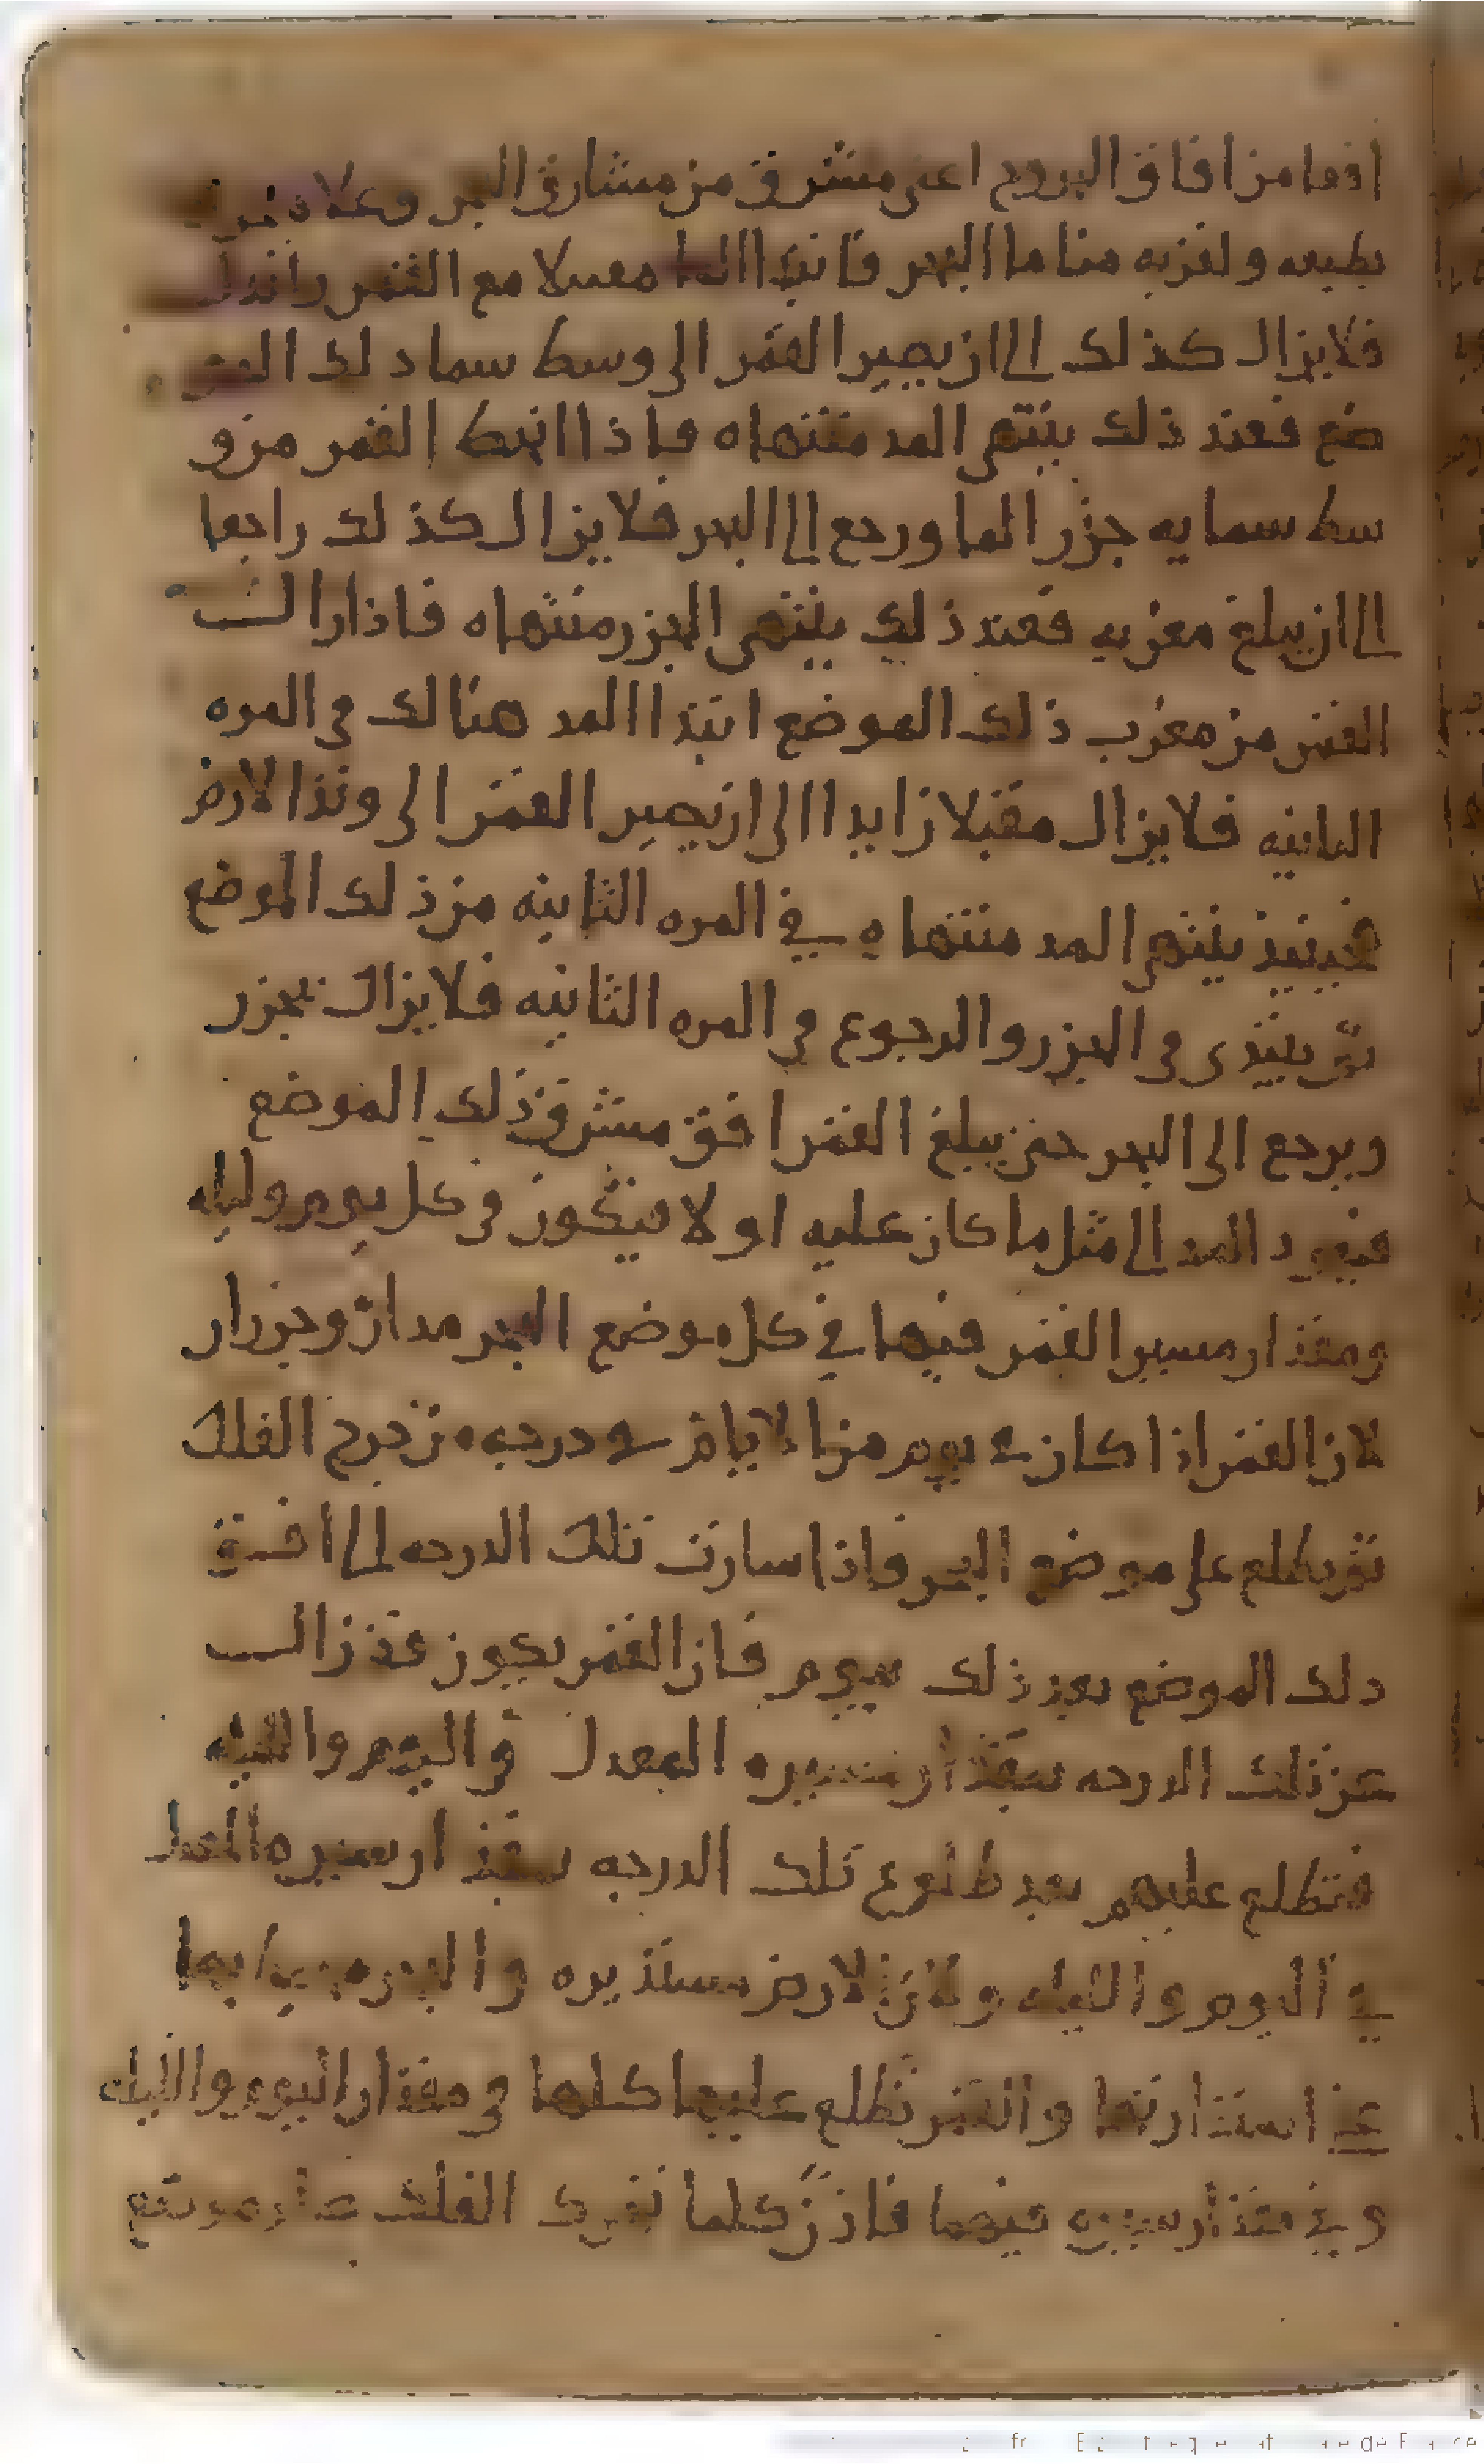 افقا من افاق البروج اعنى مشرق من مشارق البحر وعلاه
بطبعه ولقربه منا ما البحر فابتدا الما مقبلا مع القمر زايدا
فلا يزال كذلك الى ان يصير القمر الى وسط سما ذلك المو
ضع فعند ذلك ينتهى المد منتهاه فاذا انحط القمر من و
سط سمايه جزر الما ورجع الى البحر فلا يزال كذلك راجعا
الى ان يبلغ مغربه فعند ذلك ينتهى الجزر منتهاه فاذا زالت
القمر من مغرب ذلك الموضع ابتدا المد هنالك في المره
الثانيه فلا يزال مقبلا زايدا الى ان يصير القمر الى وتد الارض
فحينيذ ينتهى المد منتهاه في المره الثانيه من ذلك الموضع
ثم يبتدى في الجزر والرجوع في المره الثانيه فلا يزال يجزر
ويرجع الى البحر حتى يبلغ القمر افق مشرق ذلك الموضع
فيعود المد الى مثل ما كان عليه اولا فيكون في كل يوم وليله
ومقدار مسير القمر فيهما في كل موضع البحر مدان وجزران
لان القمر اذا كان في يوم من الايام في درجه من درج الفلك
ثم يطلع على موضع البحر فاذا سارت تلك الدرجه الى افق
ذلك الموضع بعد ذلك بيوم فان القمر يكون قد زالت
عن تلك الدرجه بمقدار مسيره المعدل في اليوم والليله
فتطلع عليهم بعد طلوع تلك الدرجه بمقدار مسيره المعدل
في اليوم والليله ولان الارض مستديره والبحر محيط بها
على استدارتها والقمر تطلع عليها كلها في مقدار اليوم والليله
وفي مقدار مسيره فيهما فاذن كلما تحرك الفلك موضع